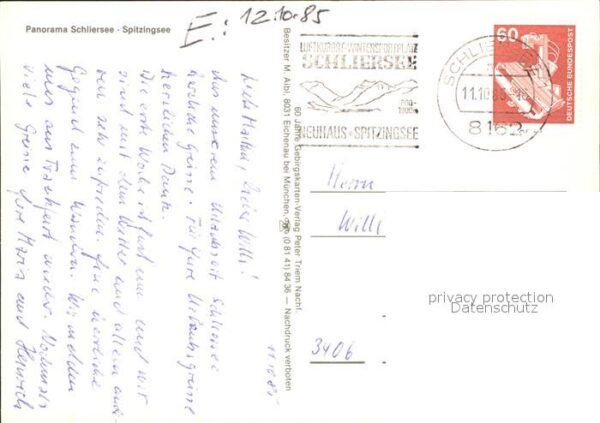 Panorama Schliersee · Spitzingsee
E.: 12.10.85
LUFTKURORT-WINTERSPORTPLATZ
SCHLIERSEE
NEUHAUS-SPITZINGSEE
SCHLIERSEE
11.10.85
8162
60
DEUTSCHE BUNDESPOST
60 Jahre Gebirgskarten-Verlag Peter Triem Nachf.
Besitzer M. Aibl, 8031 Eichenau bei München, (0 81 41) 84 36 — Nachdruck verboten
11.10.85
Willi!
Aus unserem Urlaubsort Schliersee
herzliche Grüße. Für Eure Urlaubsgrüße
herzlichen Dank.
Die erste Woche ist fast um und wir
sind mit dem Wetter und allem
sehr zufrieden. Eine herrliche
Gegend zum Wandern. Wir
Viele Grüße Eure Maria und Heinrich
Herrn
Willi
3406
privacy protection
Datenschutz